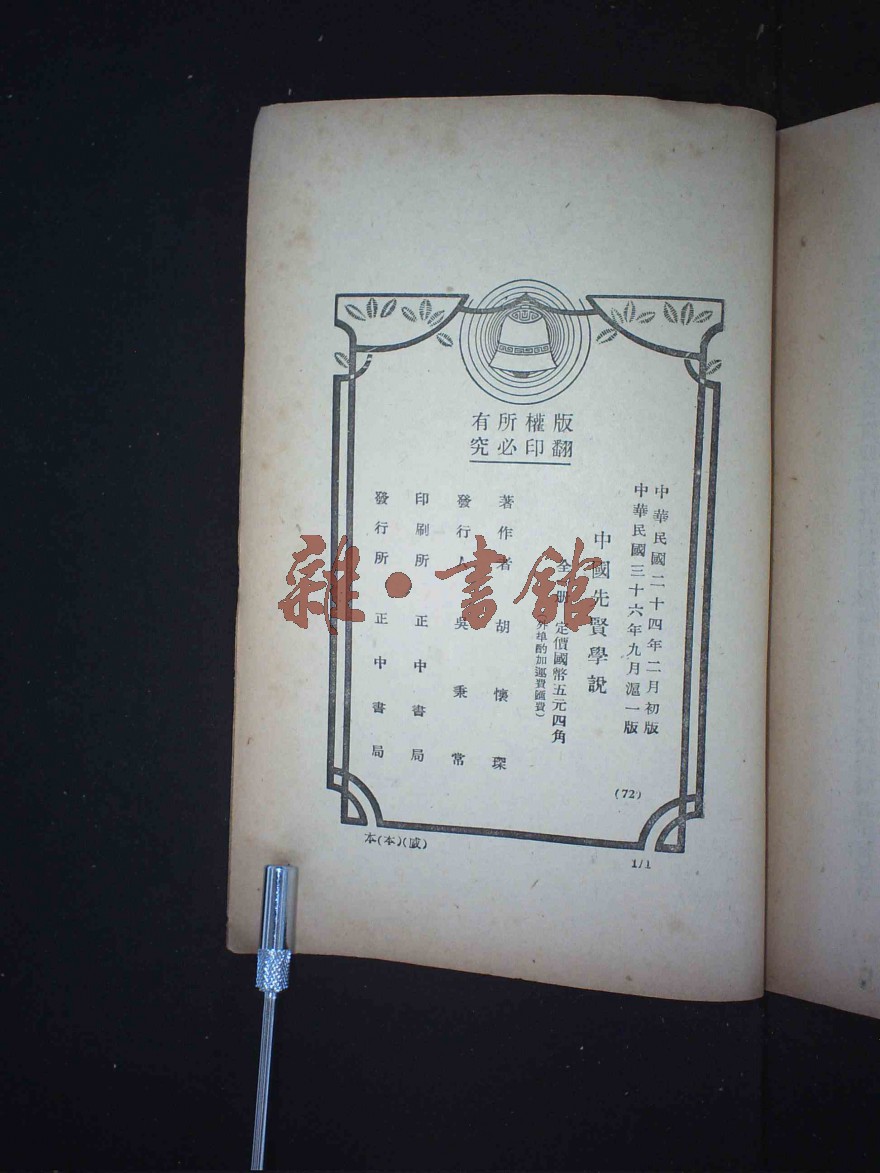 版權所有
翻印必究
中華民國二十四年二月初版
中華民國三十六年九月滬一版
中國先賢學說
全一冊 定價國幣五元四角
外埠酌加運費匯費)
著作者 胡懷琛
發行人 吳秉常
印刷所 正中書局
發行所 正中書局
(72)
本(本)(威)
1/1
雜·書館